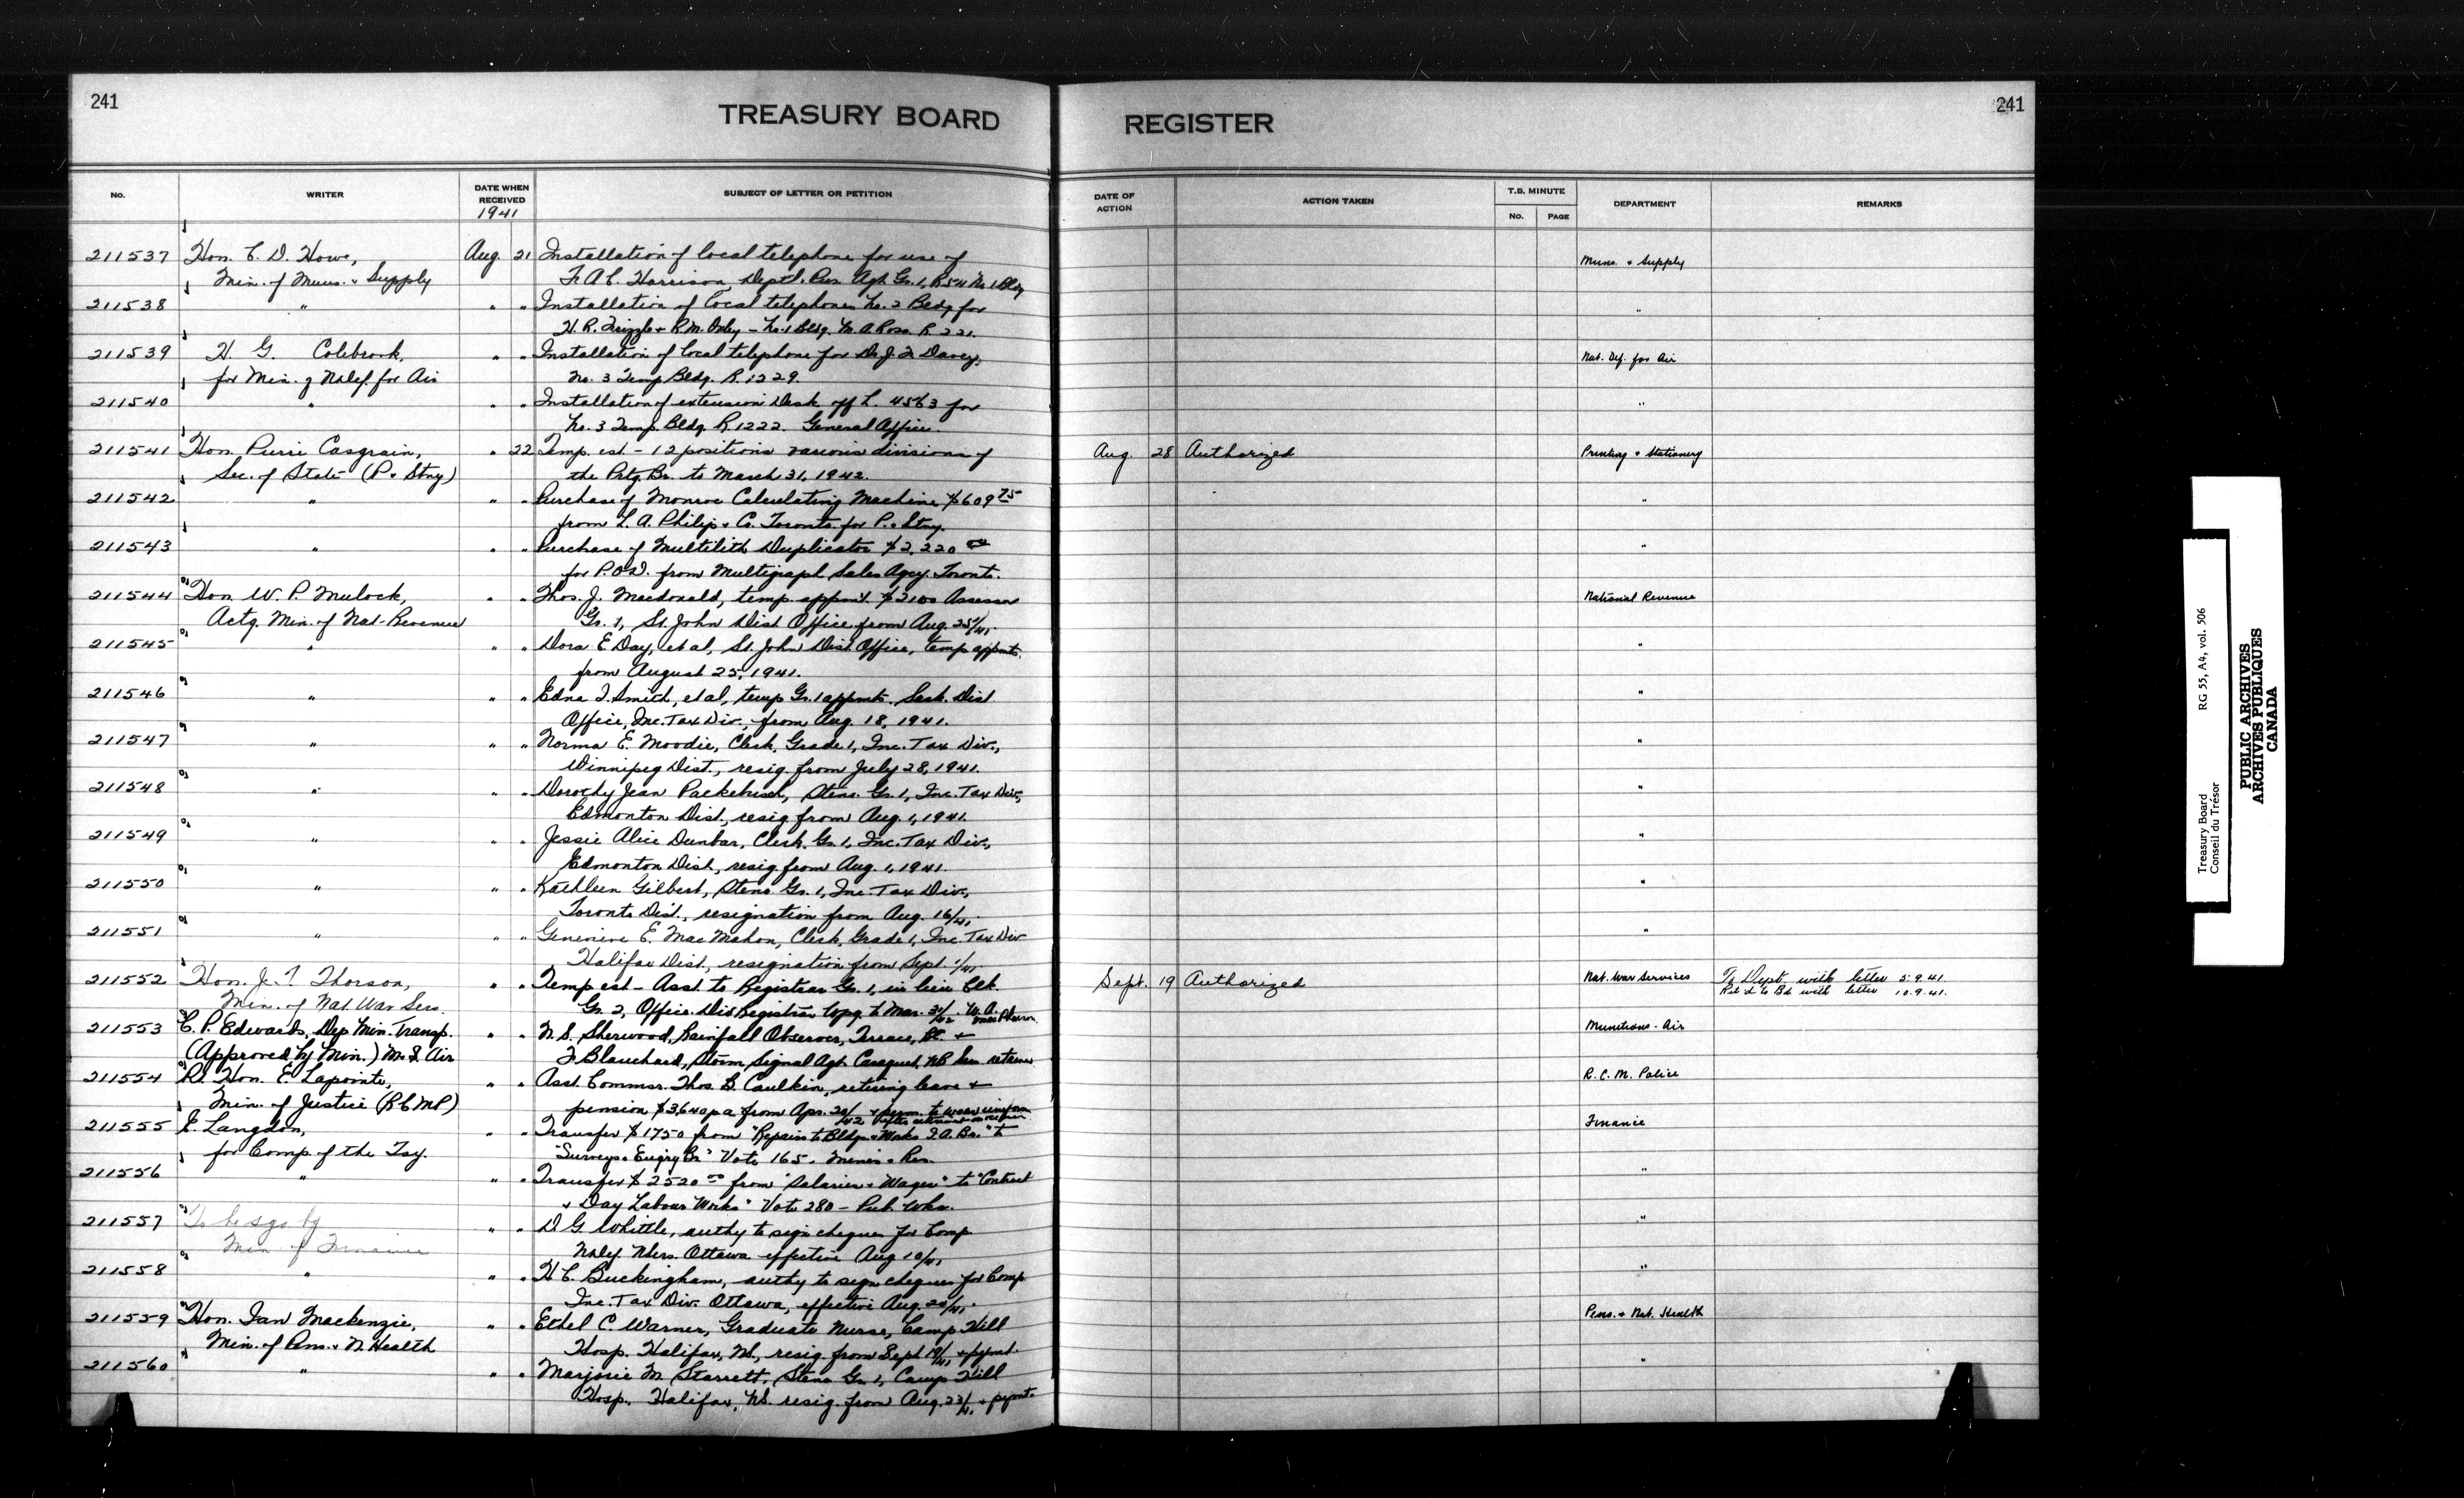 241
TREASURY BOARD
REGISTER
241
No.
WRITER
DATE WHEN RECEIVED
1941
SUBJECT OF LETTER OR PETITION
DATE OF ACTION
ACTION TAKEN
T.B. MINUTE
No.
PAGE
DEPARTMENT
REMARKS
211537 Hon. C. D. Howe, Aug. 21 Installation of local telephone for use of Muns. & Supply
Min. of Muns. & Supply F. A. C. Harrison, Dept'l. Pur. Agt. Gr. 1, R 54 No. 1 Bldg
211538 " " " Installation of local telephones No. 2 Bldg for "
H. R. Frizzle & R. M. Oxley - No. 1 Bldg. M. A. Ross R. 221.
211539 H. G. Colebrook, " " Installation of local telephone for Dr. J. F. Davey, Nat. Def. for Air
for Min. of N Def. for Air No. 3 Temp Bldg. R. 1229.
211540 " " " Installation of extension Desk off L. 4563 for "
No. 3 Temp. Bldg. R. 1222. General Office.
211541 Hon. Pierre Casgrain, " 22 Temp. est - 12 positions various divisions of Aug. 28 Authorized Printing & Stationery
Sec. of State (P. & Stny) the Prtg. Br. to March 31, 1942.
211542 " " " Purchase of Monroe Calculating Machine $609 75 "
from L. A. Philip & Co. Toronto for P. & Stny.
211543 " " " Purchase of Multilith Duplicator $2,220 00 "
for P.O.D. from Multigraph Sales Agcy. Toronto.
211544 Hon. W. P. Mulock, " " Thos. J. Macdonald, temp. appmt. $2100 Assessor National Revenue
Actg. Min. of Nat-Revenue Gr. 1, St. John Dist Office from Aug. 25/41.
211545 " " " Dora E Day, et al, St. John Dist. Office, temp appmts. "
from August 25, 1941.
211546 " " " Edna I. Smith, et al, temp Gr. 1 appmts. Sask. Dist "
Office, Inc. Tax Div., from Aug. 18, 1941.
211547 " " " Norma E. Moodie, Clerk, Grade 1, Inc. Tax Div., "
Winnipeg Dist., resig. from July 28, 1941.
211548 " " " Dorothy Jean Packebush, Steno. Gr. 1, Inc. Tax Div., "
Edmonton Dist., resig. from Aug. 1, 1941.
211549 " " " Jessie Alice Dunbar, Clerk, Gr. 1, Inc. Tax Div., "
Edmonton Dist, resig. from Aug. 1, 1941.
211550 " " " Kathleen Gilbert, Steno. Gr. 1, Inc. Tax Div., "
Toronto Dist., resignation from Aug. 16/41.
211551 " " " Genevieve E. MacMahon, Clerk, Grade 1, Inc. Tax Div "
Halifax Dist., resignation from Sept. 1/41
211552 Hon. J. T. Thorson, " " Temp est - Asst. to Registrar Gr. 1, in lieu Clk. Sept. 19 Authorized Nat. War Services To Dept. with letter 5.9.41.
Min. of Nat. War Serv. Gr. 2, Office Div Registrar to Mar. 31/42. W. A. MacPherson Ret'd to Bd with letter 10.9.41.
211553 C. P. Edwards, Dep Min. Transp. " " N. S. Sherwood, Rainfall Observer, Terrace, BC. & Munitions - Air
(Approved by Min.) M. S. Air F Blanchard, Storm Signal Agt. Caraquet, NB
211554 Rt. Hon. E. Lapointe, " " Asst. Commsr. Thos. B. Caulkin, retiring leave & R.C.M. Police
Min. of Justice (RCMP) pension $3,640 pa from Apr. 20/42 & perm. to wear uniform
211555 E. Langdon, " " Transfer $1750 from "Repairs to Bldgs. & Works to Finance
for Comp. of the Tsy. "Surveys & Engrg Br." Vote 165. Mines & Res.
211556 " " " Transfer $2520 00 from "Salaries & Wages" to "Contract "
& Day Labour Works" Vote 280 - Pub. Wks.
211557 To be sgd by " " D G Whittle, authy to sign cheques for Comp "
Min of Finance Ottawa effective Aug 10/41
211558 " " " H C. Buckingham, authy to sign cheques for Comp "
Inc. Tax Div. Ottawa, effective Aug. 20/41.
211559 Hon. Ian Mackenzie, " " Ethel C. Warner, Graduate Nurse, Camp Hill Pens. & Nat. Health
Min. of Pens. & N Health Hosp. Halifax, NS., resig. from Sept 19/41 & pymt.
211560 " " " Marjorie M. Starrett, Steno Gr. 1, Camp Hill "
Hosp. Halifax, NS. resig. from Aug. 23/41 & pymt.
Treasury Board RG 55, A4, vol. 506
Conseil du Trésor
PUBLIC ARCHIVES
ARCHIVES PUBLIQUES
CANADA